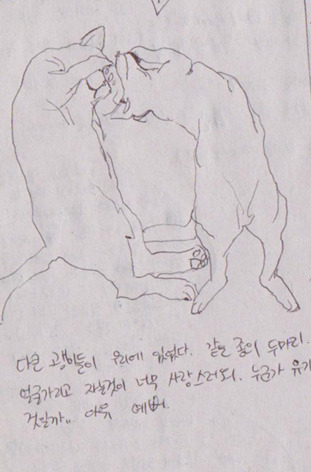 다른 괭이들이 우리에 있었다. 같은 종의 두마리.
얼굴가리고 자는것이 너무 사랑스러워. 누군가 유기
것일까.. 아유 예뻐.